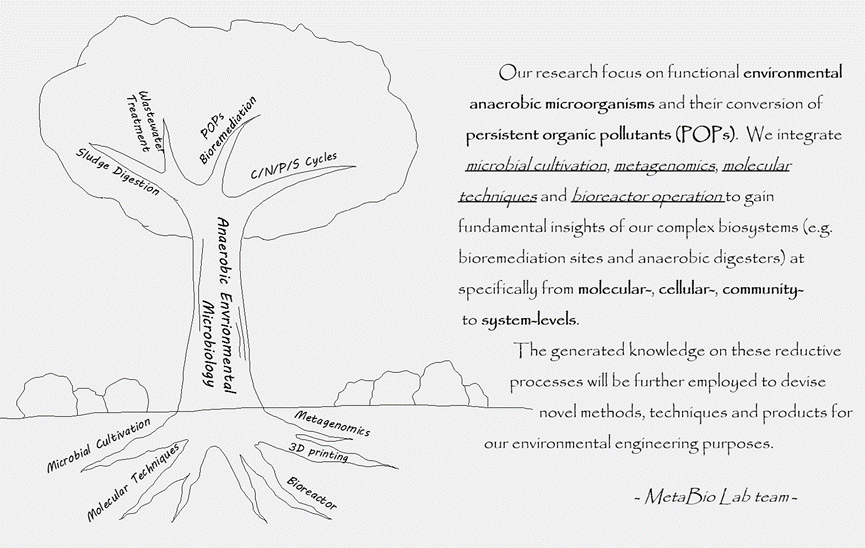 Wastewater
Treatment
POPs
Bioremediation
Sludge Digestion
C/N/P/S Cycles
Anaerobic Envrionmental
Microbiology
Microbial Cultivation
Molecular Techniques
Metagenomics
3D printing
Bioreactor
Our research focus on functional environmental
anaerobic microorganisms and their conversion of
persistent organic pollutants (POPs). We integrate
microbial cultivation, metagenomics, molecular
techniques and bioreactor operation to gain
fundamental insights of our complex biosystems (e.g.
bioremediation sites and anaerobic digesters) at
specifically from molecular-, cellular-, community-
to system-levels.
The generated knowledge on these reductive
processes will be further employed to devise
novel methods, techniques and products for
our environmental engineering purposes.
- MetaBio Lab team -